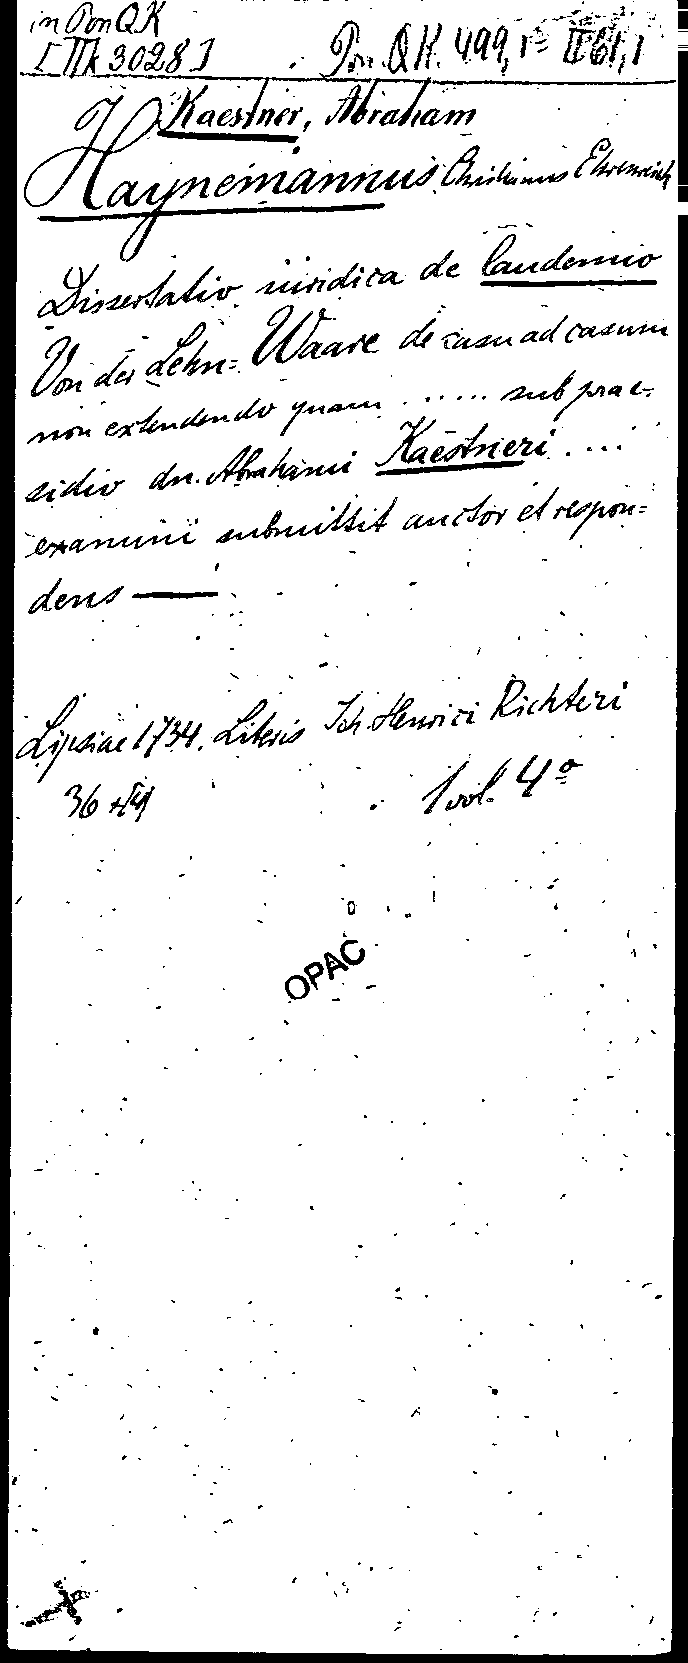 in Pon QK
[IIk 3028] Pon. QK. 499, 1= II 61, 1
Kaestner, Abraham
Haynemannus Christianus Ehrenreich
Dissertatio iuridica de laudemio
Von der Lehn-Waare de casu ad casum
non extendendo quam ...... sub prae-
sidio dn. Abrahami Kaestneri ....
examini submittit auctor et respon=
dens —
Lipsiae 1734. Literis Joh. Henrici Richteri
36
1 vol. 4º
OPAC